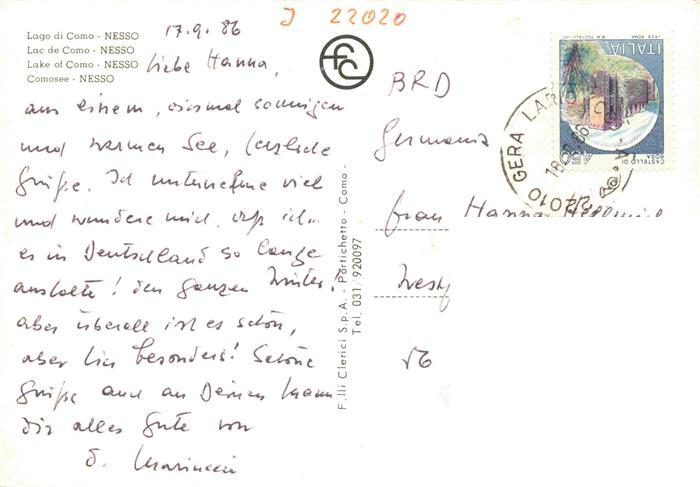 17.9.86
J 22020
Lago di Como - NESSO
Lac de Como - NESSO
Lake of Como - NESSO
Comosee - NESSO
Liebe Hanna,
aus einem, diesmal sonnigen
und warmen See, herzliche
Grüße. Ich unternehme viel
und wundere mich, daß ich
es in Deutschland so lange
aushalte! den ganzen Winter!
aber überall ist es schön,
aber hier besonders! Schöne
Grüße auch an Deinen Mann
Dir alles Gute von
F.lli Clerici S.p.A. - Portichetto - Como -
Tel. 031/920097
fc
BRD
Germania
Frau Hanna
ITALIA
450
CASTELLO DI
GERA LARIO
22010